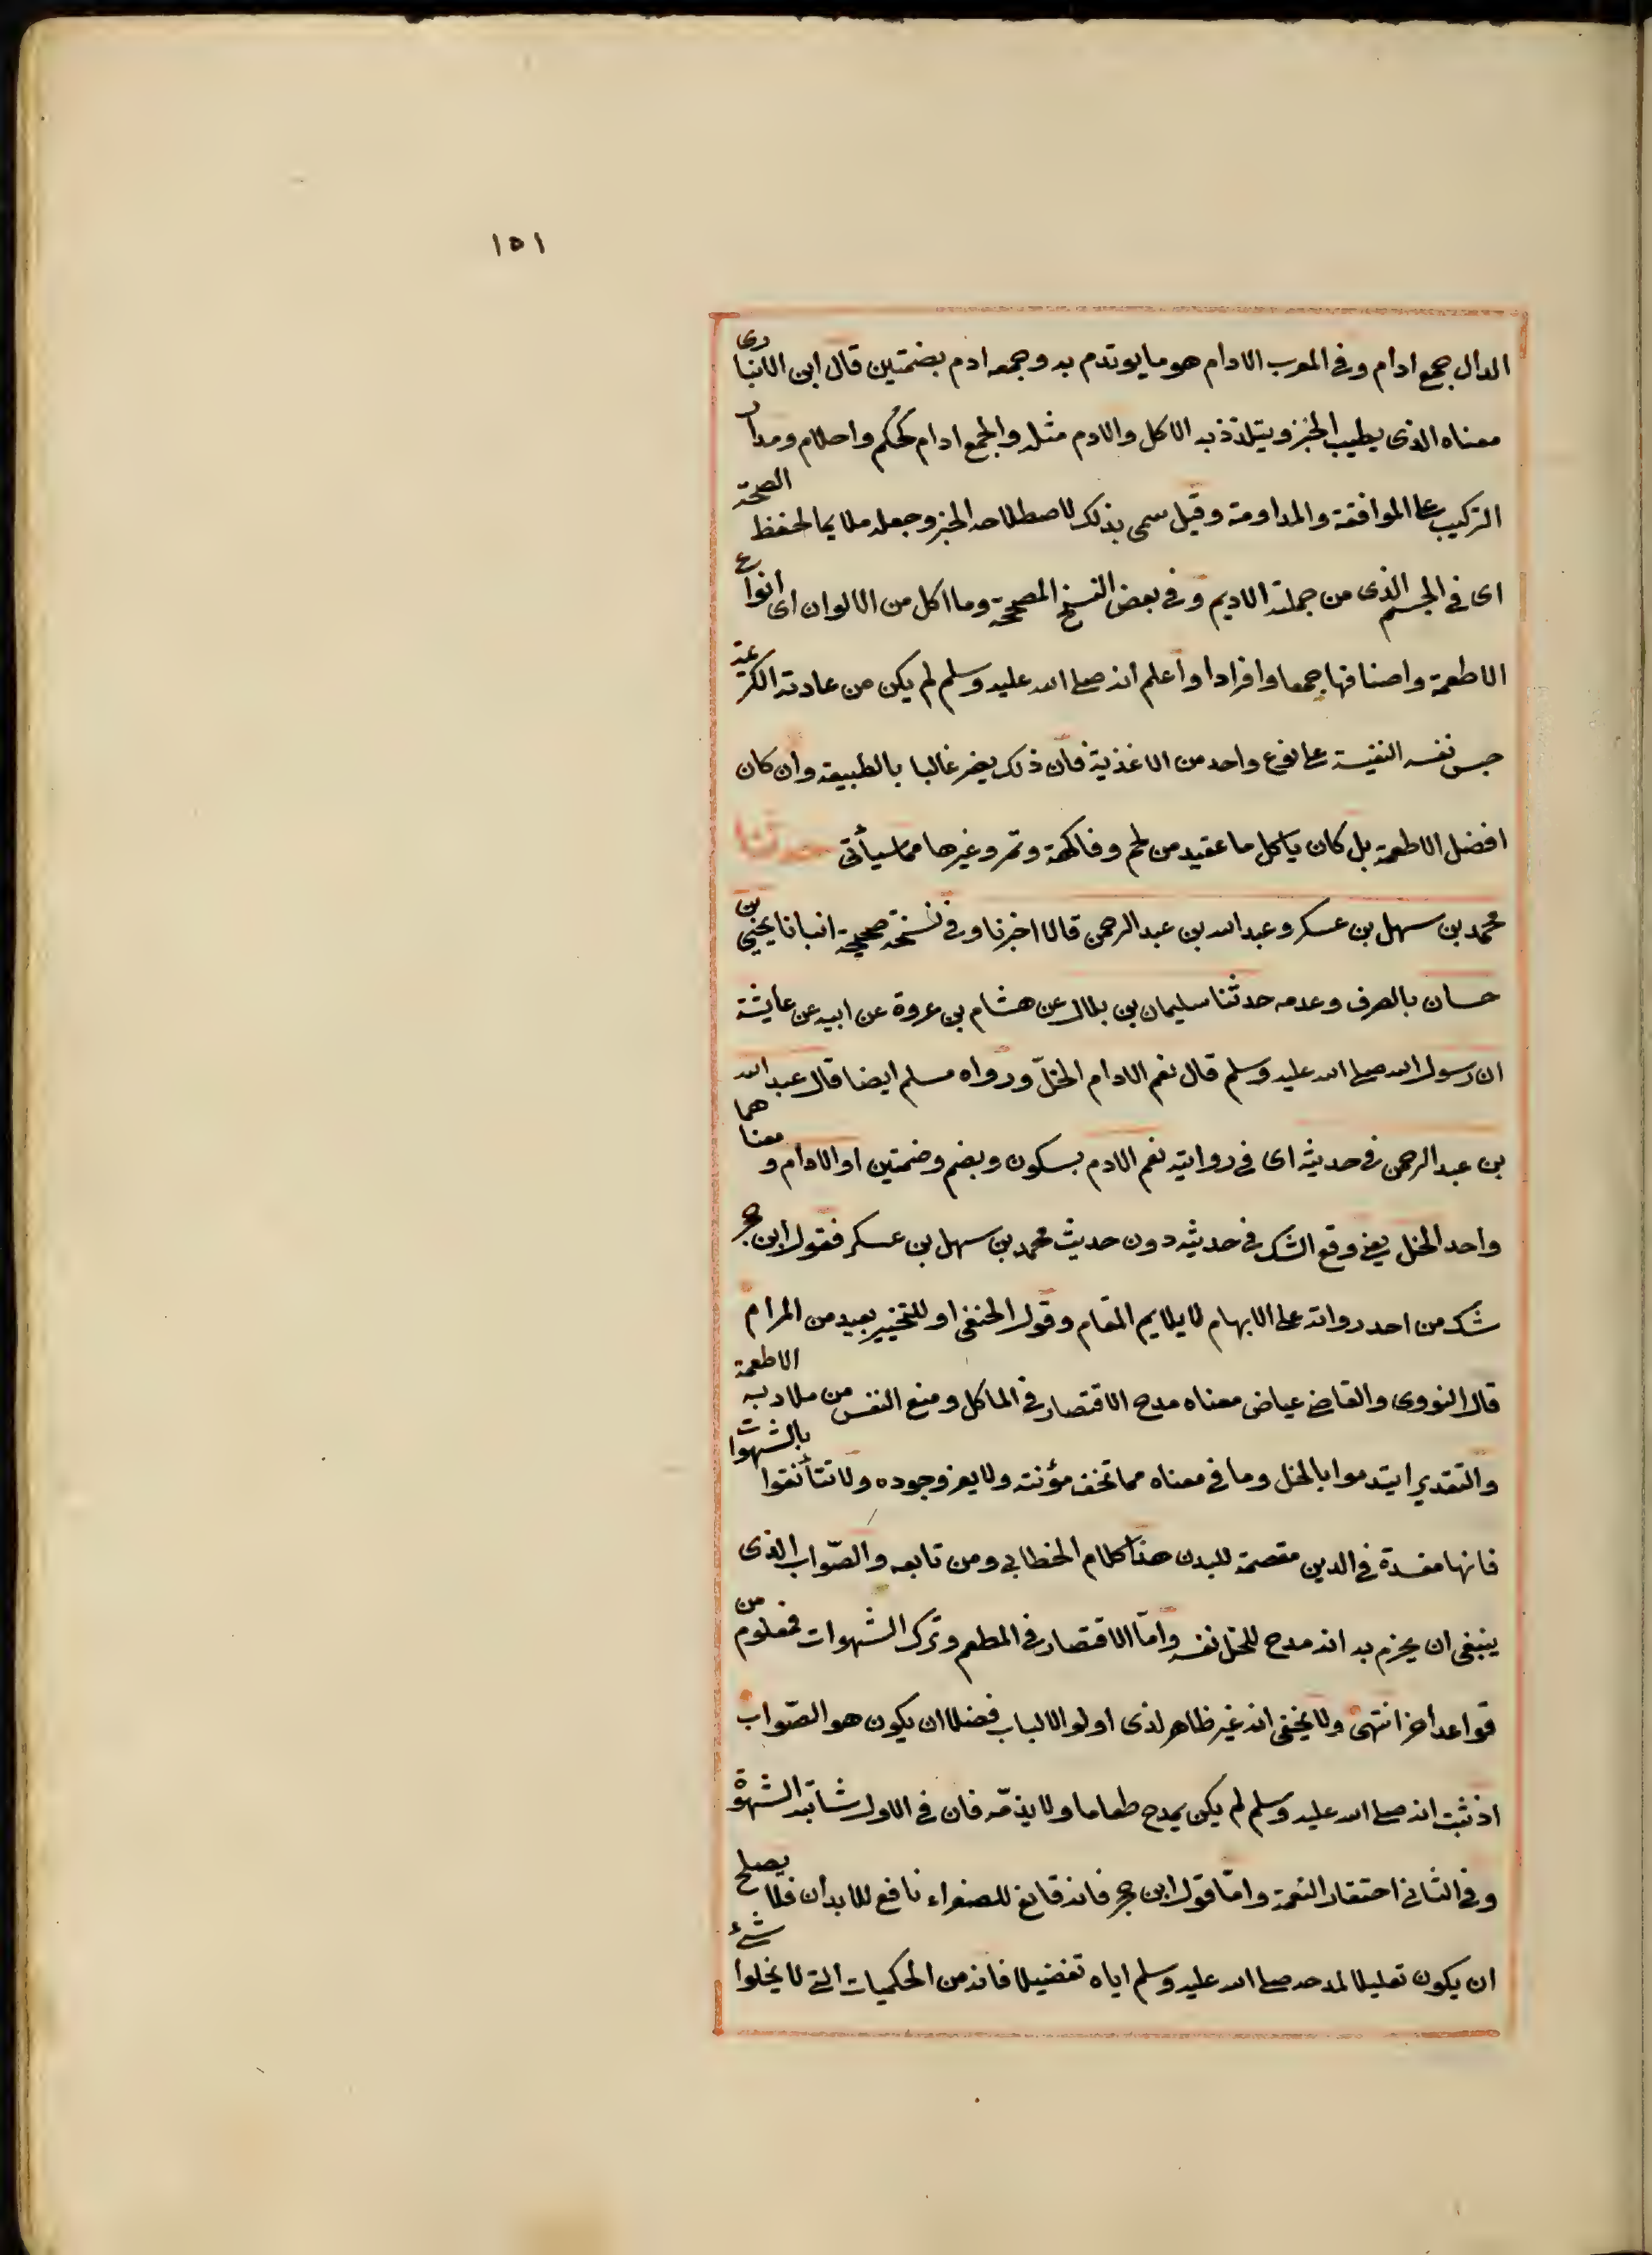 ١٥١
الدال جمع ادام وفى المغرب الادام هو ما يوتدم به وجمعه ادم بضمتين قال ابن الانبارى
معناه الذى يطيب الخبز ويتلذذ به الاكل والادم مثله والجمع ادام كحكم واحلام ومدار
التركيب على الموافقة والمداومة وقيل سمى بذلك لاصطلاحه الخبز وجعله ملايما لحفظ الصحة
اى فى الجسم الذى من جملته الاديم وفى بعض النسخ المصححة وما اكل من الالوان اى انواع
الاطعمة واصنافها جمعا وافرادا واعلم انه صلى الله عليه وسلم لم يكن من عادته الكريمة
حبس نفسه النفيسة على نوع واحد من الاغذية فان ذلك يضر غالبا بالطبيعة وان كان
افضل الاطعمة بل كان ياكل ما عقيد من لحم وفاكهة وتمر وغيرها مما سيأتى حدثنا
محمد بن سهل بن عسكر وعبد الله بن عبد الرحمن قالا اخبرنا وفى نسخة صحيحة انبانا يحيى بن
حسان بالصرف وعدمه حدثنا سليمان بن بلال عن هشام بن عروة عن ابيه عن عايشة
ان رسول الله صلى الله عليه وسلم قال نعم الادام الخلّ ورواه مسلم ايضا قال عبد الله
بن عبد الرحمن فى حديثه اى فى روايته نعم الادم بسكون وبضم وضمتين او الادام ومعناهما
واحد الخل يعنى وقع الشك فى حديثه دون حديث محمد بن سهل بن عسكر فقول ابن حجر
شك من احد رواته على الابهام لا يلايم المقام وقول الحنفى او للتخيير بعيد من المرام
قال النووى والقاضى عياض معناه مدح الاقتصار فى الماكل ومنع النفس من ملاذ به الاطعمة
والتقدير ايتدموا بالخل وما فى معناه مما تخف مؤنته ولا يعز وجوده ولا تتأنقوا بالشهوات
فانها مفسدة فى الدين مقصمة للبدن هذا كلام الخطابى ومن تابعه والصّواب الذى
ينبغى ان يجزم به انه مدح للخل نفسه وامّا الاقتصار فى المطعم وترك الشهوات فمعلوم من
قواعد اخر انتهى ولا يخفى انه غير ظاهر لذى اولو الالباب فضلا ان يكون هو الصّواب
اذ ثبت انه صلى الله عليه وسلم لم يكن يمدح طعاما ولا يذمّه فان فى الاول شائبة الشهوة
وفى الثانى احتقار النعمة وامّا قول ابن حجر فانه قامع للصفراء نافع للابدان فلا يصلح
ان يكون تعليلا لمدحه صلى الله عليه وسلم اياه تفضيلا فانه من الحكميات التى لا يخلوا شىء